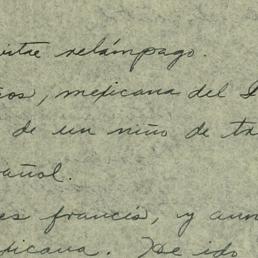 vitae relámpago.
os, mexicana del D
de un niño de ta
añol.
es francés, y aun
xicana. He ido